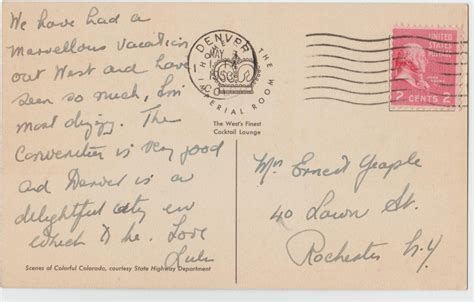 We have had a
marvellous vacation
out West and have
seen so much, I'm
most dizzy. The
Convention is very good
and Denver is a
delightful city in
which to be. Love
Lulu
Scenes of Colorful Colorado, courtesy State Highway Department
DENVER
MAY
COLO
THE
IMPERIAL ROOM
The West's Finest
Cocktail Lounge
UNITED STATES
POSTAGE
2 CENTS 2
Mrs Ernest Yeaple
40 Lawn St.
Rochester N.Y